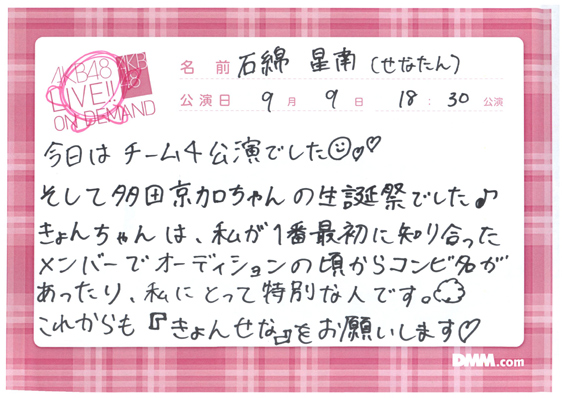 AKB48
LIVE!!
ON DEMAND
AKB
48
名前 石綿 星南 (せなたん)
公演日 9月 9日 18:30 公演
今日は チーム4公演でした
そして多田京加ちゃんの生誕祭でした♪
きょんちゃんは、私が1番最初に知り合った
メンバーでオーディションの頃からコンビ名が
あったり、私にとって特別な人です。
これからも『きょんせな』をお願いします♡
DMM.com